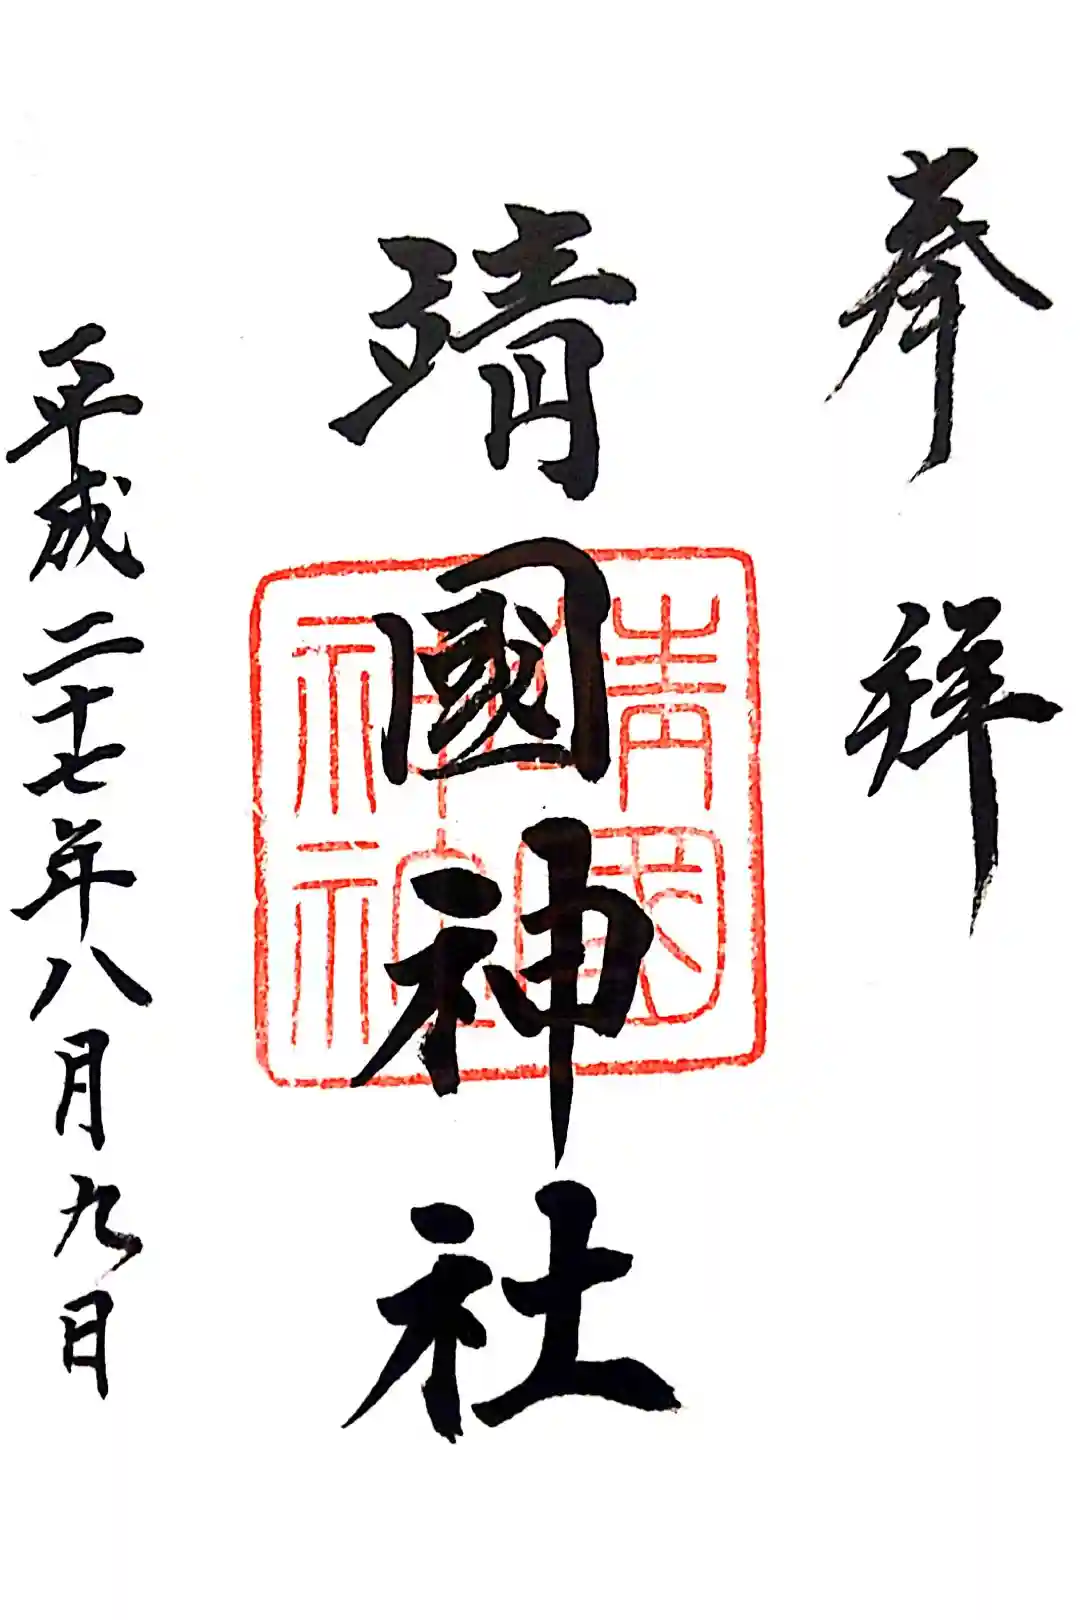 奉拜
靖國神社
靖國
神社
平成二十七年八月九日